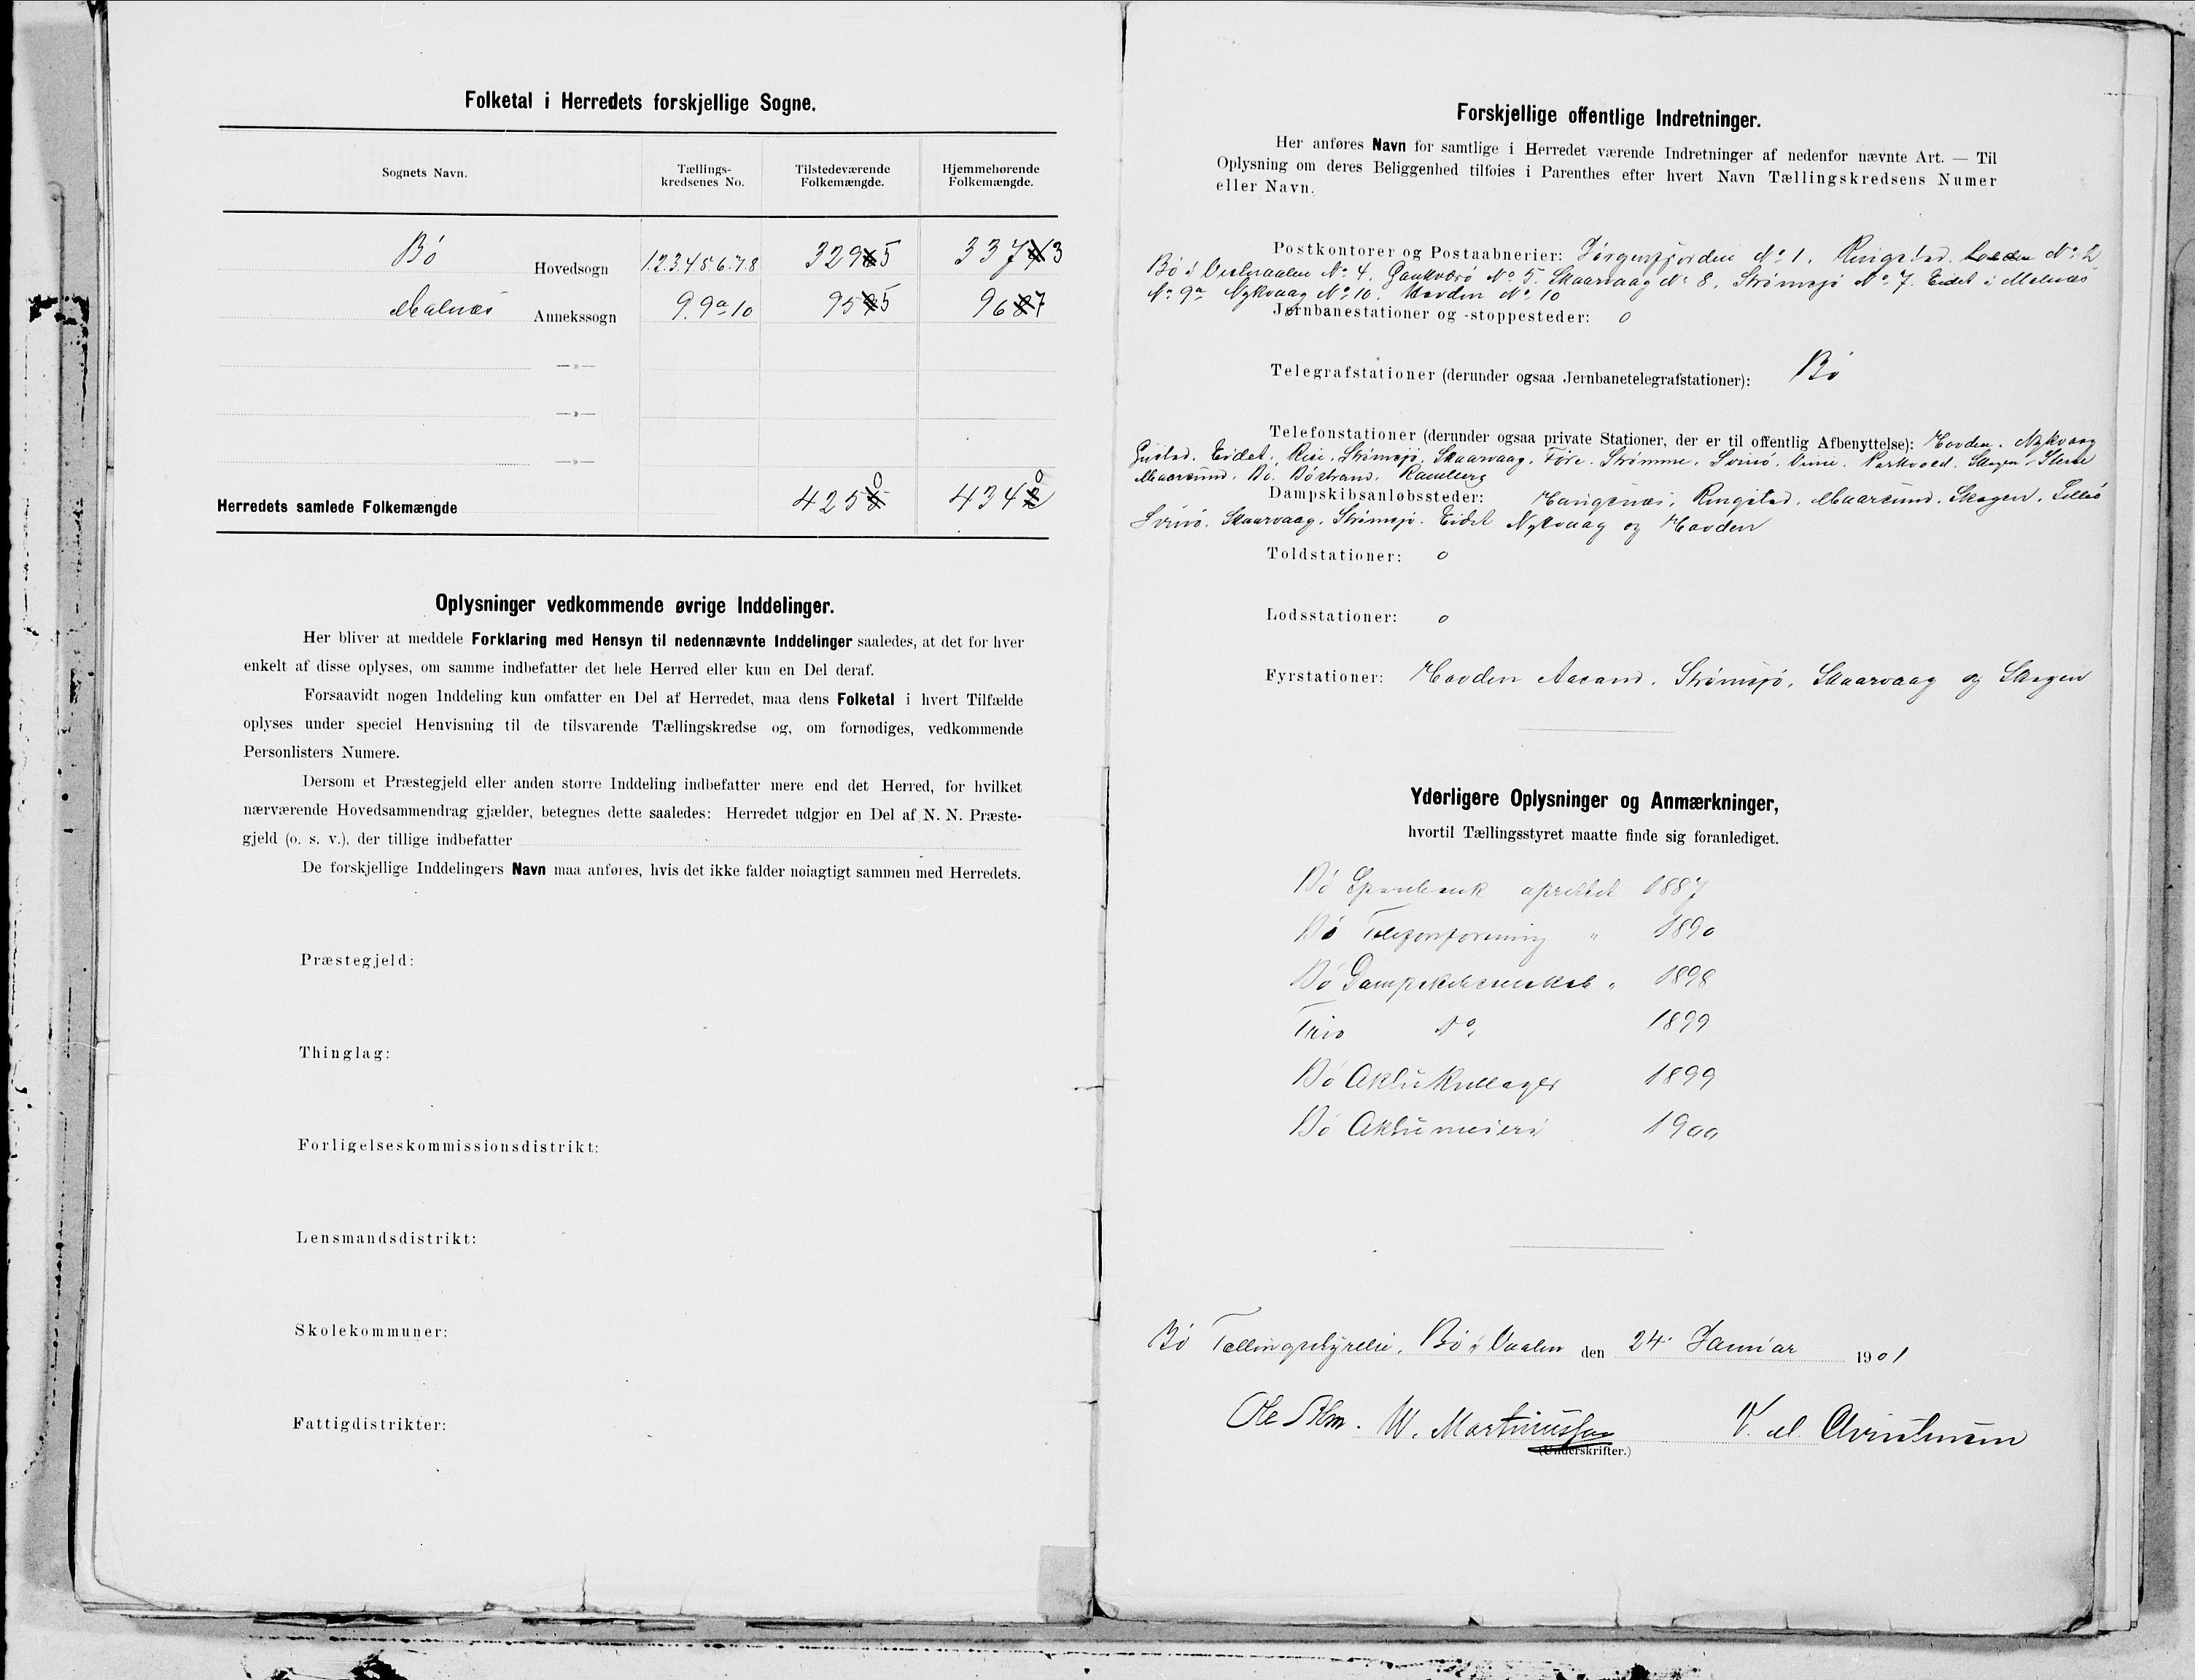 Folketal i Herredets forskjellige Sogne.
Sognets Navn.
Tællings-
kredsenes No.
Tilstedeværende
Folkemængde.
Hjemmehørende
Folkemængde.
Bö Hovedsogn 1.2.3.4.5.6.7.8 3295 3373
Malnæs Annekssogn 9. 9a 10 955 967
—»—
—»—
—»—
Herredets samlede Folkemængde 4250 4340
Oplysninger vedkommende øvrige Inddelinger.
Her bliver at meddele Forklaring med Hensyn til nedennævnte Inddelinger saaledes, at det for hver
enkelt af disse oplyses, om samme indbefatter det hele Herred eller kun en Del deraf.
Forsaavidt nogen Inddeling kun omfatter en Del af Herredet, maa dens Folketal i hvert Tilfælde
oplyses under speciel Henvisning til de tilsvarende Tællingskredse og, om fornødiges, vedkommende
Personlisters Numere.
Dersom et Præstegjeld eller anden større Inddeling indbefatter mere end det Herred, for hvilket
nærværende Hovedsammendrag gjælder, betegnes dette saaledes: Herredet udgjør en Del af N. N. Præste-
gjeld (o. s. v.), der tillige indbefatter
De forskjellige Inddelingers Navn maa anføres, hvis det ikke falder nøiagtigt sammen med Herredets.
Præstegjeld:
Thinglag:
Forligelseskommissionsdistrikt:
Lensmandsdistrikt:
Skolekommuner:
Fattigdistrikter:
Forskjellige offentlige Indretninger.
Her anføres Navn for samtlige i Herredet værende Indretninger af nedenfor nævnte Art. — Til
Oplysning om deres Beliggenhed tilføies i Parenthes efter hvert Navn Tællingskredsens Numer
eller Navn.
Postkontorer og Postaabnerier: Jörgenfjorden No 1. Ringstad No 2
Bö i Vesteraalen No 4. Gaukværö No 5. Skaarvaag No 8. Strömsjö No 7. Eidet i Malnæs
No 9a Nykvaag No 10. Hovden No 10
Jernbanestationer og -stoppesteder: 0
Telegrafstationer (derunder ogsaa Jernbanetelegrafstationer): Bö
Telefonstationer (derunder ogsaa private Stationer, der er til offentlig Afbenyttelse): Hovden. Nykvaag
Eidet. Strömsjö. Skaarvaag. Före. Strömme. Svinö. Vinie. Skagen. Steine
Maarsund. Bö. Böstrand. Ramberg
Dampskibsanløbssteder: Ringstad. Maarsund. Skagen.
Svinö. Skaarvaag. Strömsjö. Eidet Nykvaag og Hovden
Toldstationer: 0
Lodsstationer: 0
Fyrstationer: Hovden Aasand. Strömsjö. Skaarvaag og Skagen
Yderligere Oplysninger og Anmærkninger,
hvortil Tællingsstyret maatte finde sig foranlediget.
Bö Sparebank oprettet 1887
Bö Telefonforening " 1890
Bö Dampskibsselskab " 1898
Trio Do 1899
Bö Aktiekullager 1899
Bö Aktiemeieri 1900
Bö Tællingsstyrelse, Bö i Vaalen den 24 Januar 1901
Ole W. Martinussen V. Christensen
(Underskrifter.)